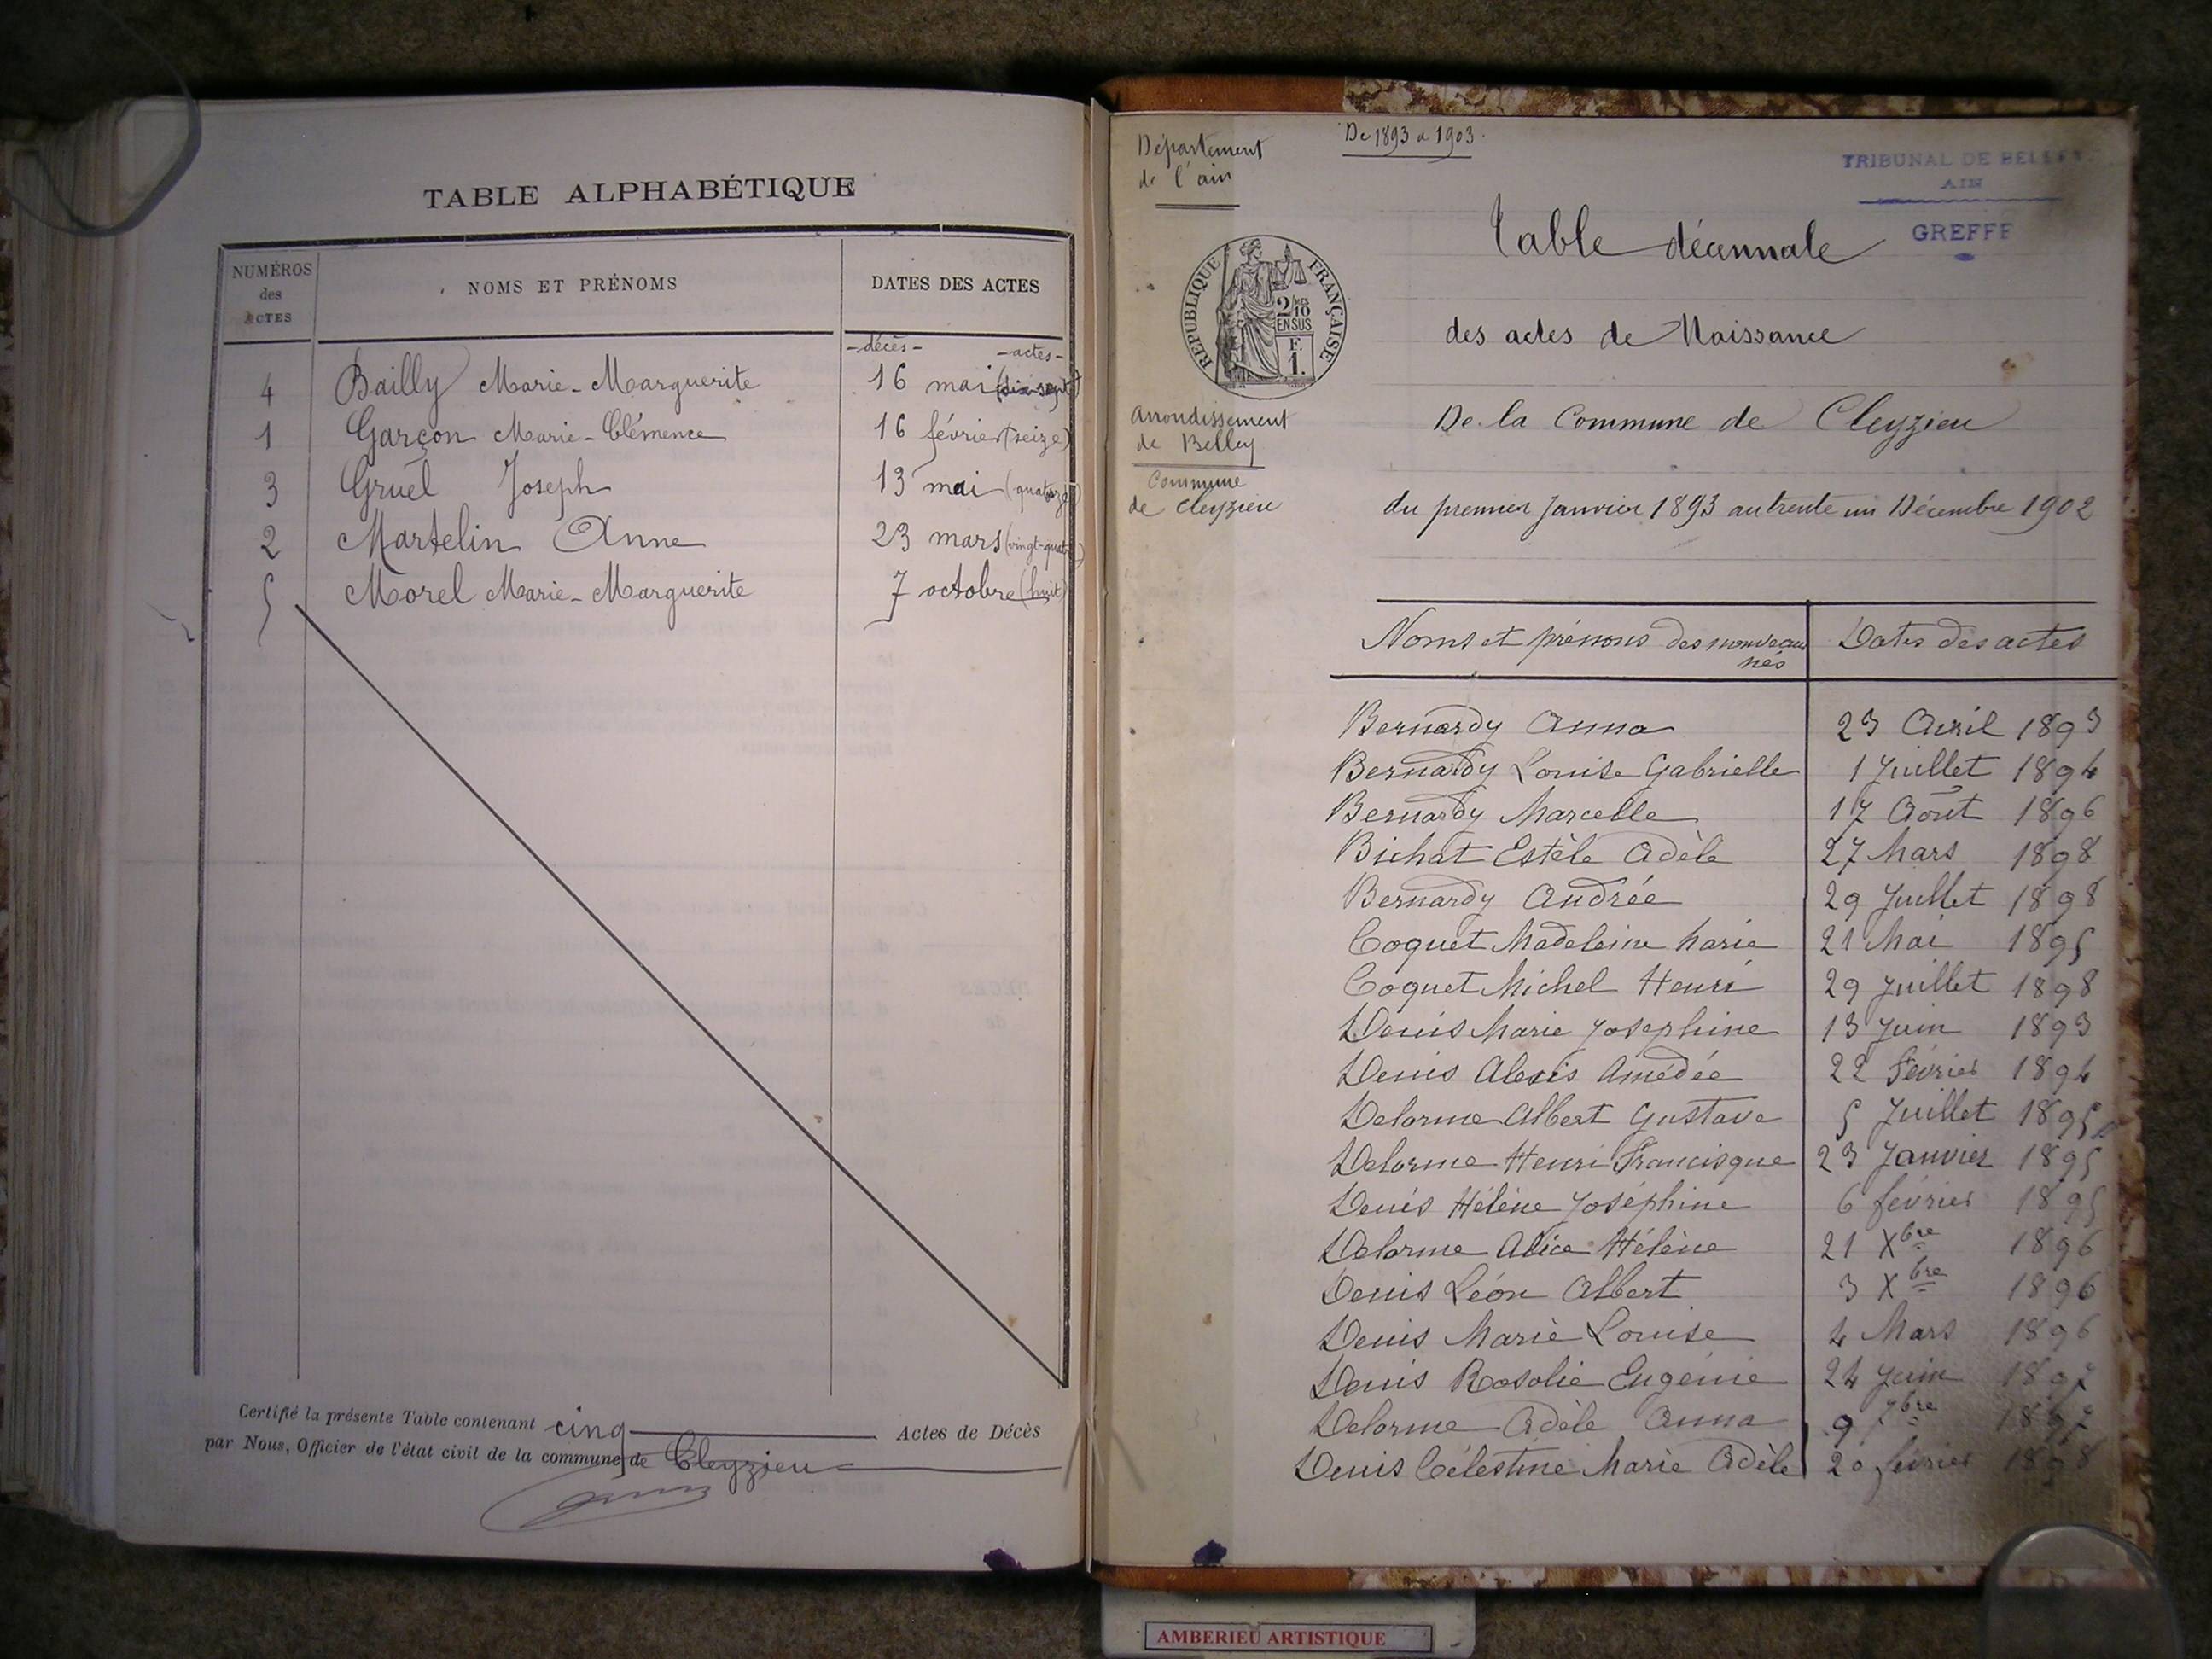 TABLE ALPHABÉTIQUE
NUMÉROS des ACTES
NOMS ET PRÉNOMS
DATES DES ACTES
- décès - - actes -
4 Bailly Marie-Marguerite 16 mai (dix-sept)
1 Garçon Marie-Clémence 16 février (seize)
3 Gruel Joseph 13 mai (quatorze)
2 Martelin Anne 23 mars (vingt-quatre)
5 Morel Marie-Marguerite 7 octobre (huit)
Certifié la présente Table contenant cinq Actes de Décès
par Nous, Officier de l'état civil de la commune de Cleyzieu
Département
de l'ain
De 1893 a 1903.
TRIBUNAL DE BELLEY
AIN
GREFFE
RÉPUBLIQUE FRANÇAISE
2/10 MES
EN SUS
F.
1.
Arrondissement
de Belley
Commune
de Cleyzieu
Table décennale
des actes de Naissance
De la Commune de Cleyzieu
du premier Janvier 1893 au trente un Décembre 1902
Noms et prénoms des nouveaux nés
Dates des actes
Bernardy Anna 23 Avril 1893
Bernardy Louise Gabrielle 1 Juillet 1894
Bernardy Marcelle 17 Août 1896
Bichat Estèle Adèle 27 Mars 1898
Bernardy Andrée 29 Juillet 1898
Coquet Madeleine Marie 21 Mai 1895
Coquet Michel Henri 29 Juillet 1898
Denis Marie Josephine 13 Juin 1893
Denis Alexis Amédée 22 Février 1894
Delorme Albert Gustave 5 Juillet 1895
Delorme Henri Francisque 23 Janvier 1895
Denis Hélène Joséphine 6 février 1895
Delorme Alice Hélène 21 Xbre 1896
Denis Léon Albert 3 Xbre 1896
Denis Marie Louise 4 Mars 1896
Denis Rosalie Eugénie 24 Juin 1897
Delorme Adèle Anna 9 7bre 1897
Denis Célestine Marie Adèle 20 février 1898
AMBERIEU ARTISTIQUE